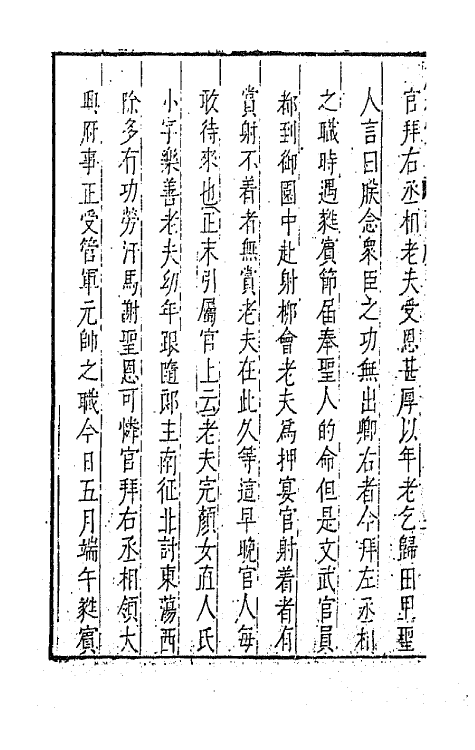 官拜右丞相老夫受恩甚厚以年老乞歸田里聖
人言曰朕念衆臣之功無出卿右者今拜左丞相
之職時遇蕤賓節届奉聖人的命但是文武官員
都到御園中赴射柳會老夫爲押宴官射着者有
賞射不着者無賞老夫在此久等這早晚官人每
敢待來也正末引屬官上云老夫完顏女直人氏
小字樂善老夫幼年跟隨郎主南征北討東蕩西
除多有功勞汗馬謝聖恩可憐官拜右丞相領大
興府事正受管軍元帥之職今日五月端午蕤賓